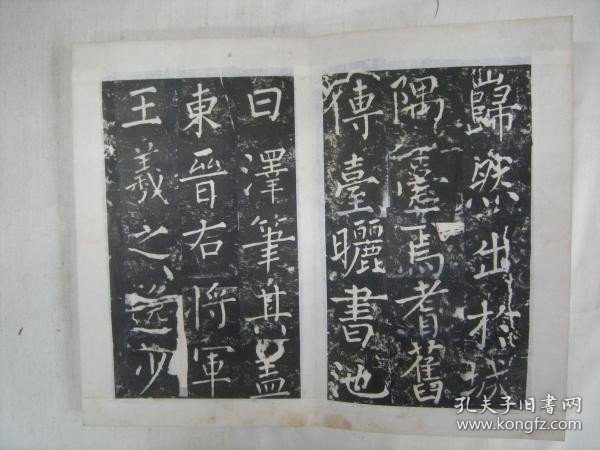 巋然出於城
隅焉耆舊
傳臺曬書池
曰澤筆其盖
東晉右將軍
王羲之逸少
孔夫子旧书网
www.kongfz.com